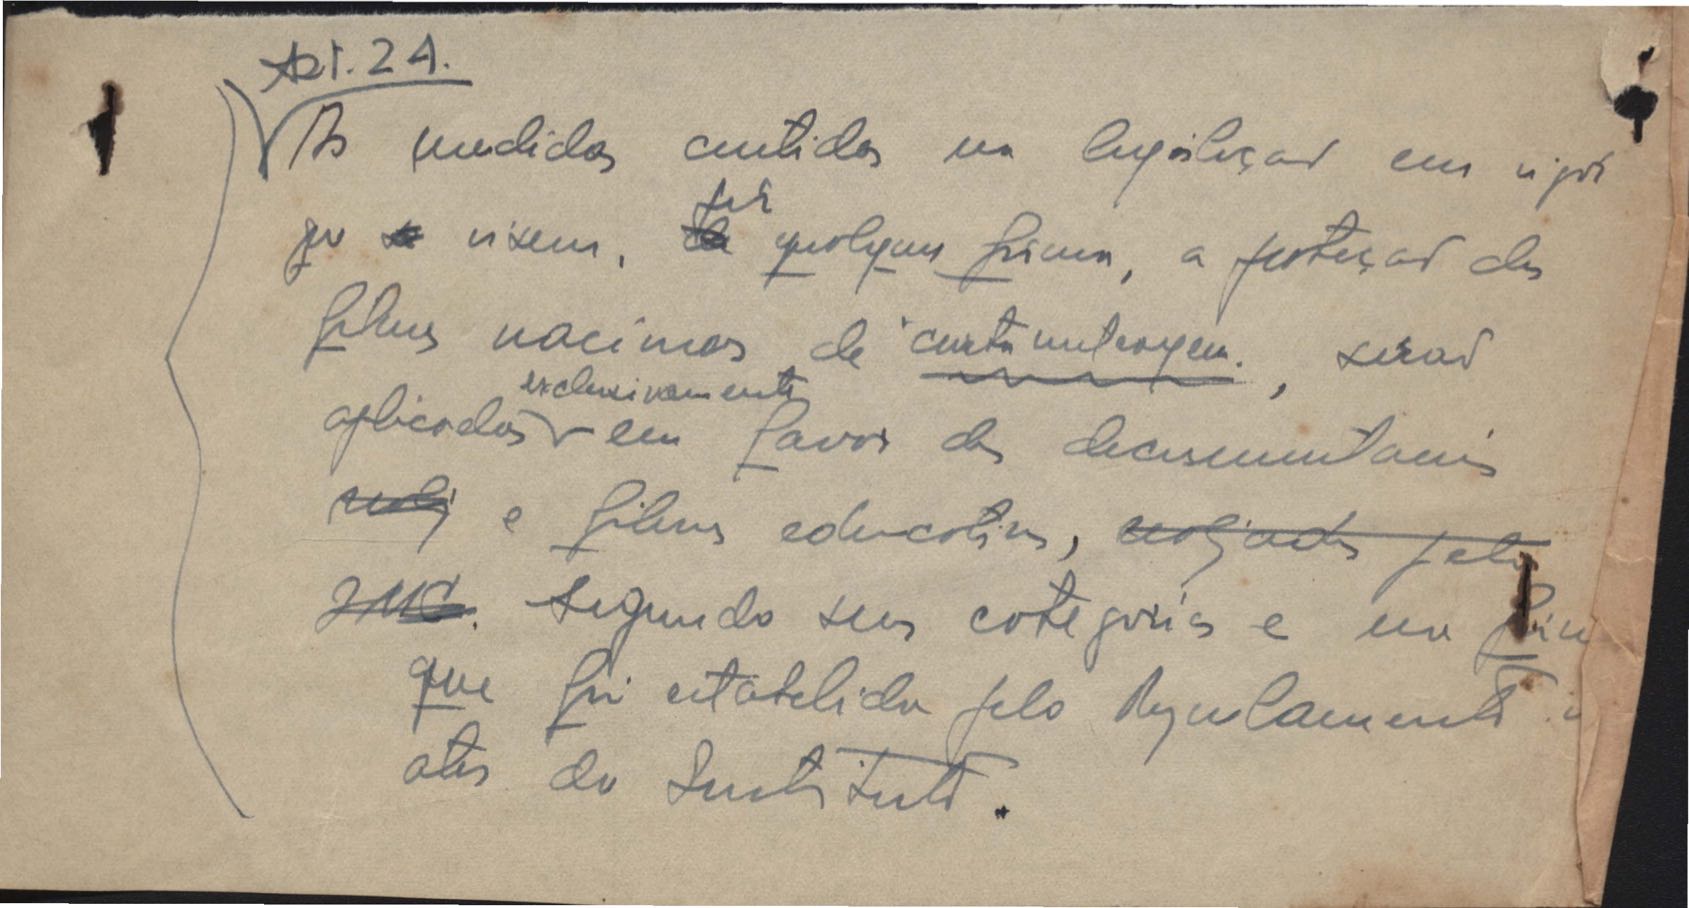 Art. 24.
As medidas contidas na legislação em vigor
que visem, por qualquer forma, a proteção dos
filmes nacionais de "curta metragem", serão
aplicadas exclusivamente em favor dos documentários
e filmes educativos, realizados pelo
INC. segundo suas categorias e na forma
que for estabelecida pelo Regulamento e
atos do Instituto.